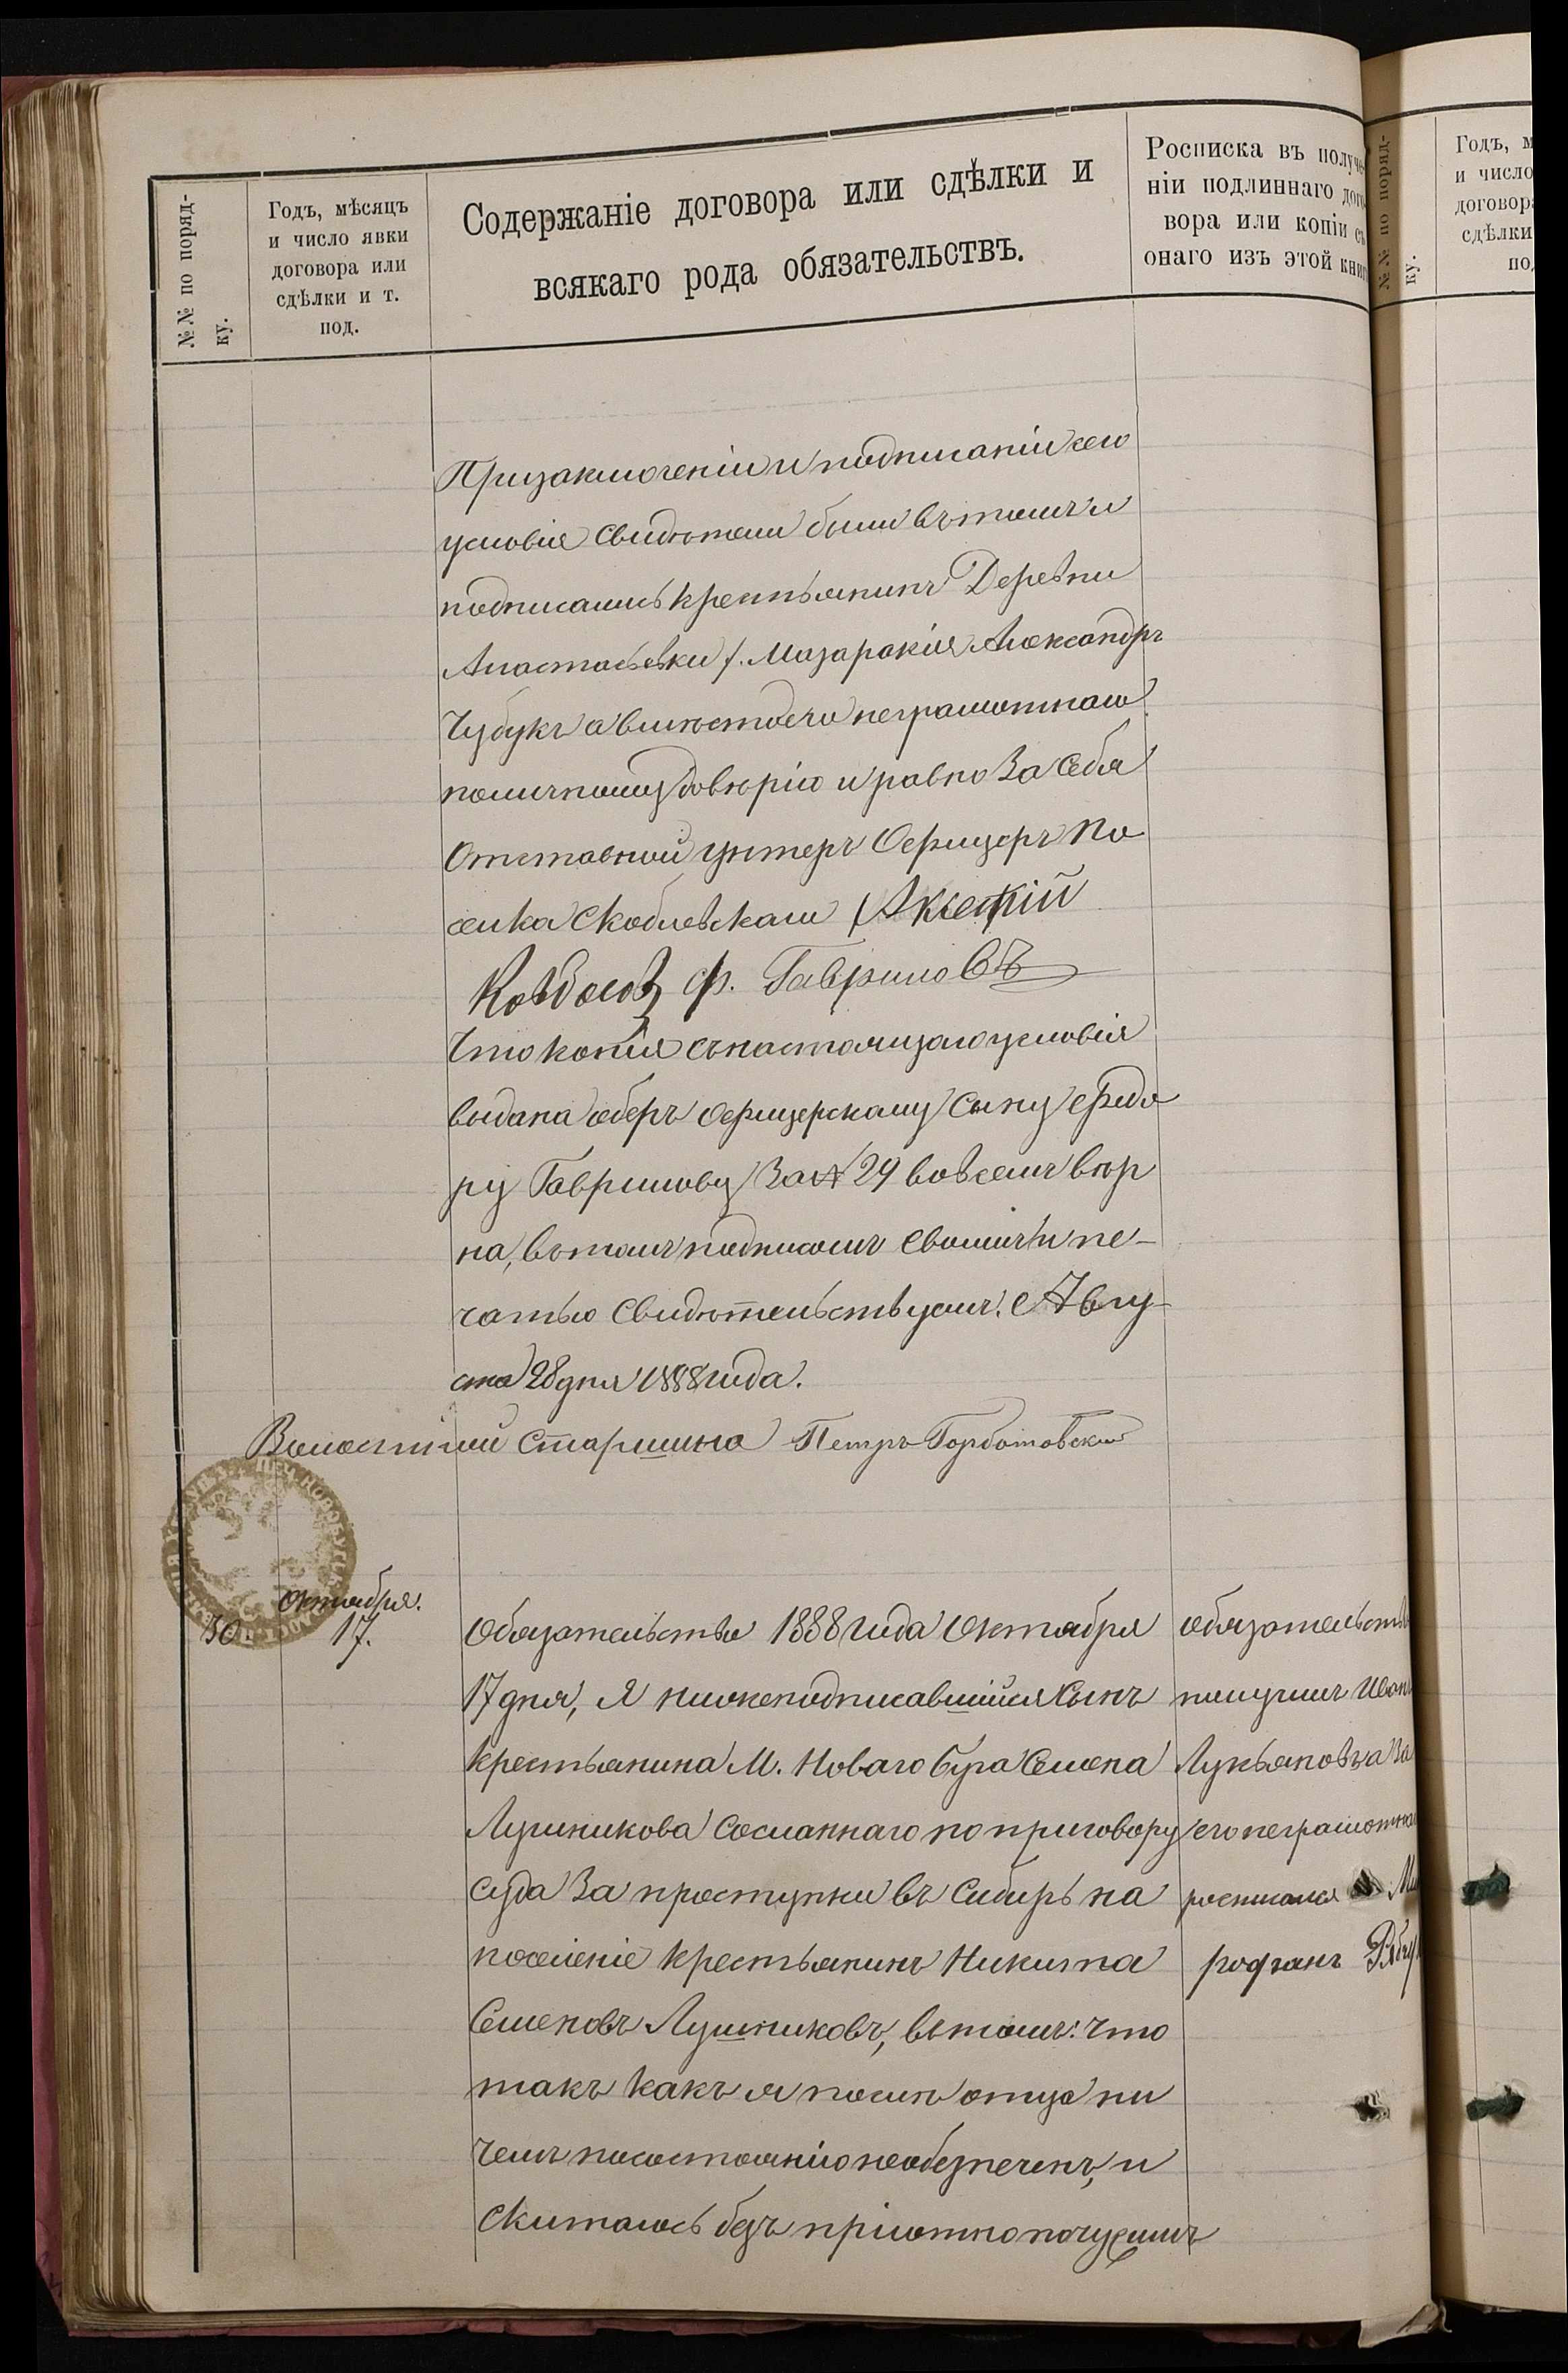 №№ по поряд-
ку.
Годъ, мѣсяцъ
и число явки
договора или
сдѣлки и т.
под.
Содержаніе договора или сдѣлки и
всякаго рода обязательствъ.
Росписка въ получе
ніи подлиннаго дого
вора или копіи съ
онаго изъ этой книг
№№ по поряд-
ку.
Годъ, м
и число
договора
сдѣлки
по
При заключеніи и подписаніи сего
условія свидѣтели были въ томъ и
подписались крестьянинъ Деревни
Анастасьевки /. Мазаракія Александръ
Чубукъ а вмѣсто его неграмотнаго
по личному довѣрію и равно за себя
Отставной унтеръ Офицеръ по
селка Скоблевскаго
Ф. Гавриловъ
Что копія съ настоящаго условія
выдана оберъ офицерскому сыну Федо
ру Гаврилову за № 29 во всемъ вѣр
на, въ томъ подписомъ своимъ и пе-
чатью свидѣтельствуемъ. Авгу-
ста 28 дня 1888 года.
Волостной Старшина Петръ Горботовскій
30
Октября.
17.
Обязательство 1888 года Октября
17 дня, Я нижеподписавшійся сынъ
крестьянина М. Новаго Буга Семена
Лушникова сосланнаго по приговору
суда за проступки въ Сибирь на
поселеніе крестьянинъ Никита
Семеновъ Лушниковъ, въ томъ: что
такъ какъ я послѣ отца ни
чемъ по состоянію необезпеченъ, и
скитаюсь безъ пріютно по чужимъ
обязательств
получилъ Иван
Лукьяновъ а за
его неграмотна
росписался М
рофанъ